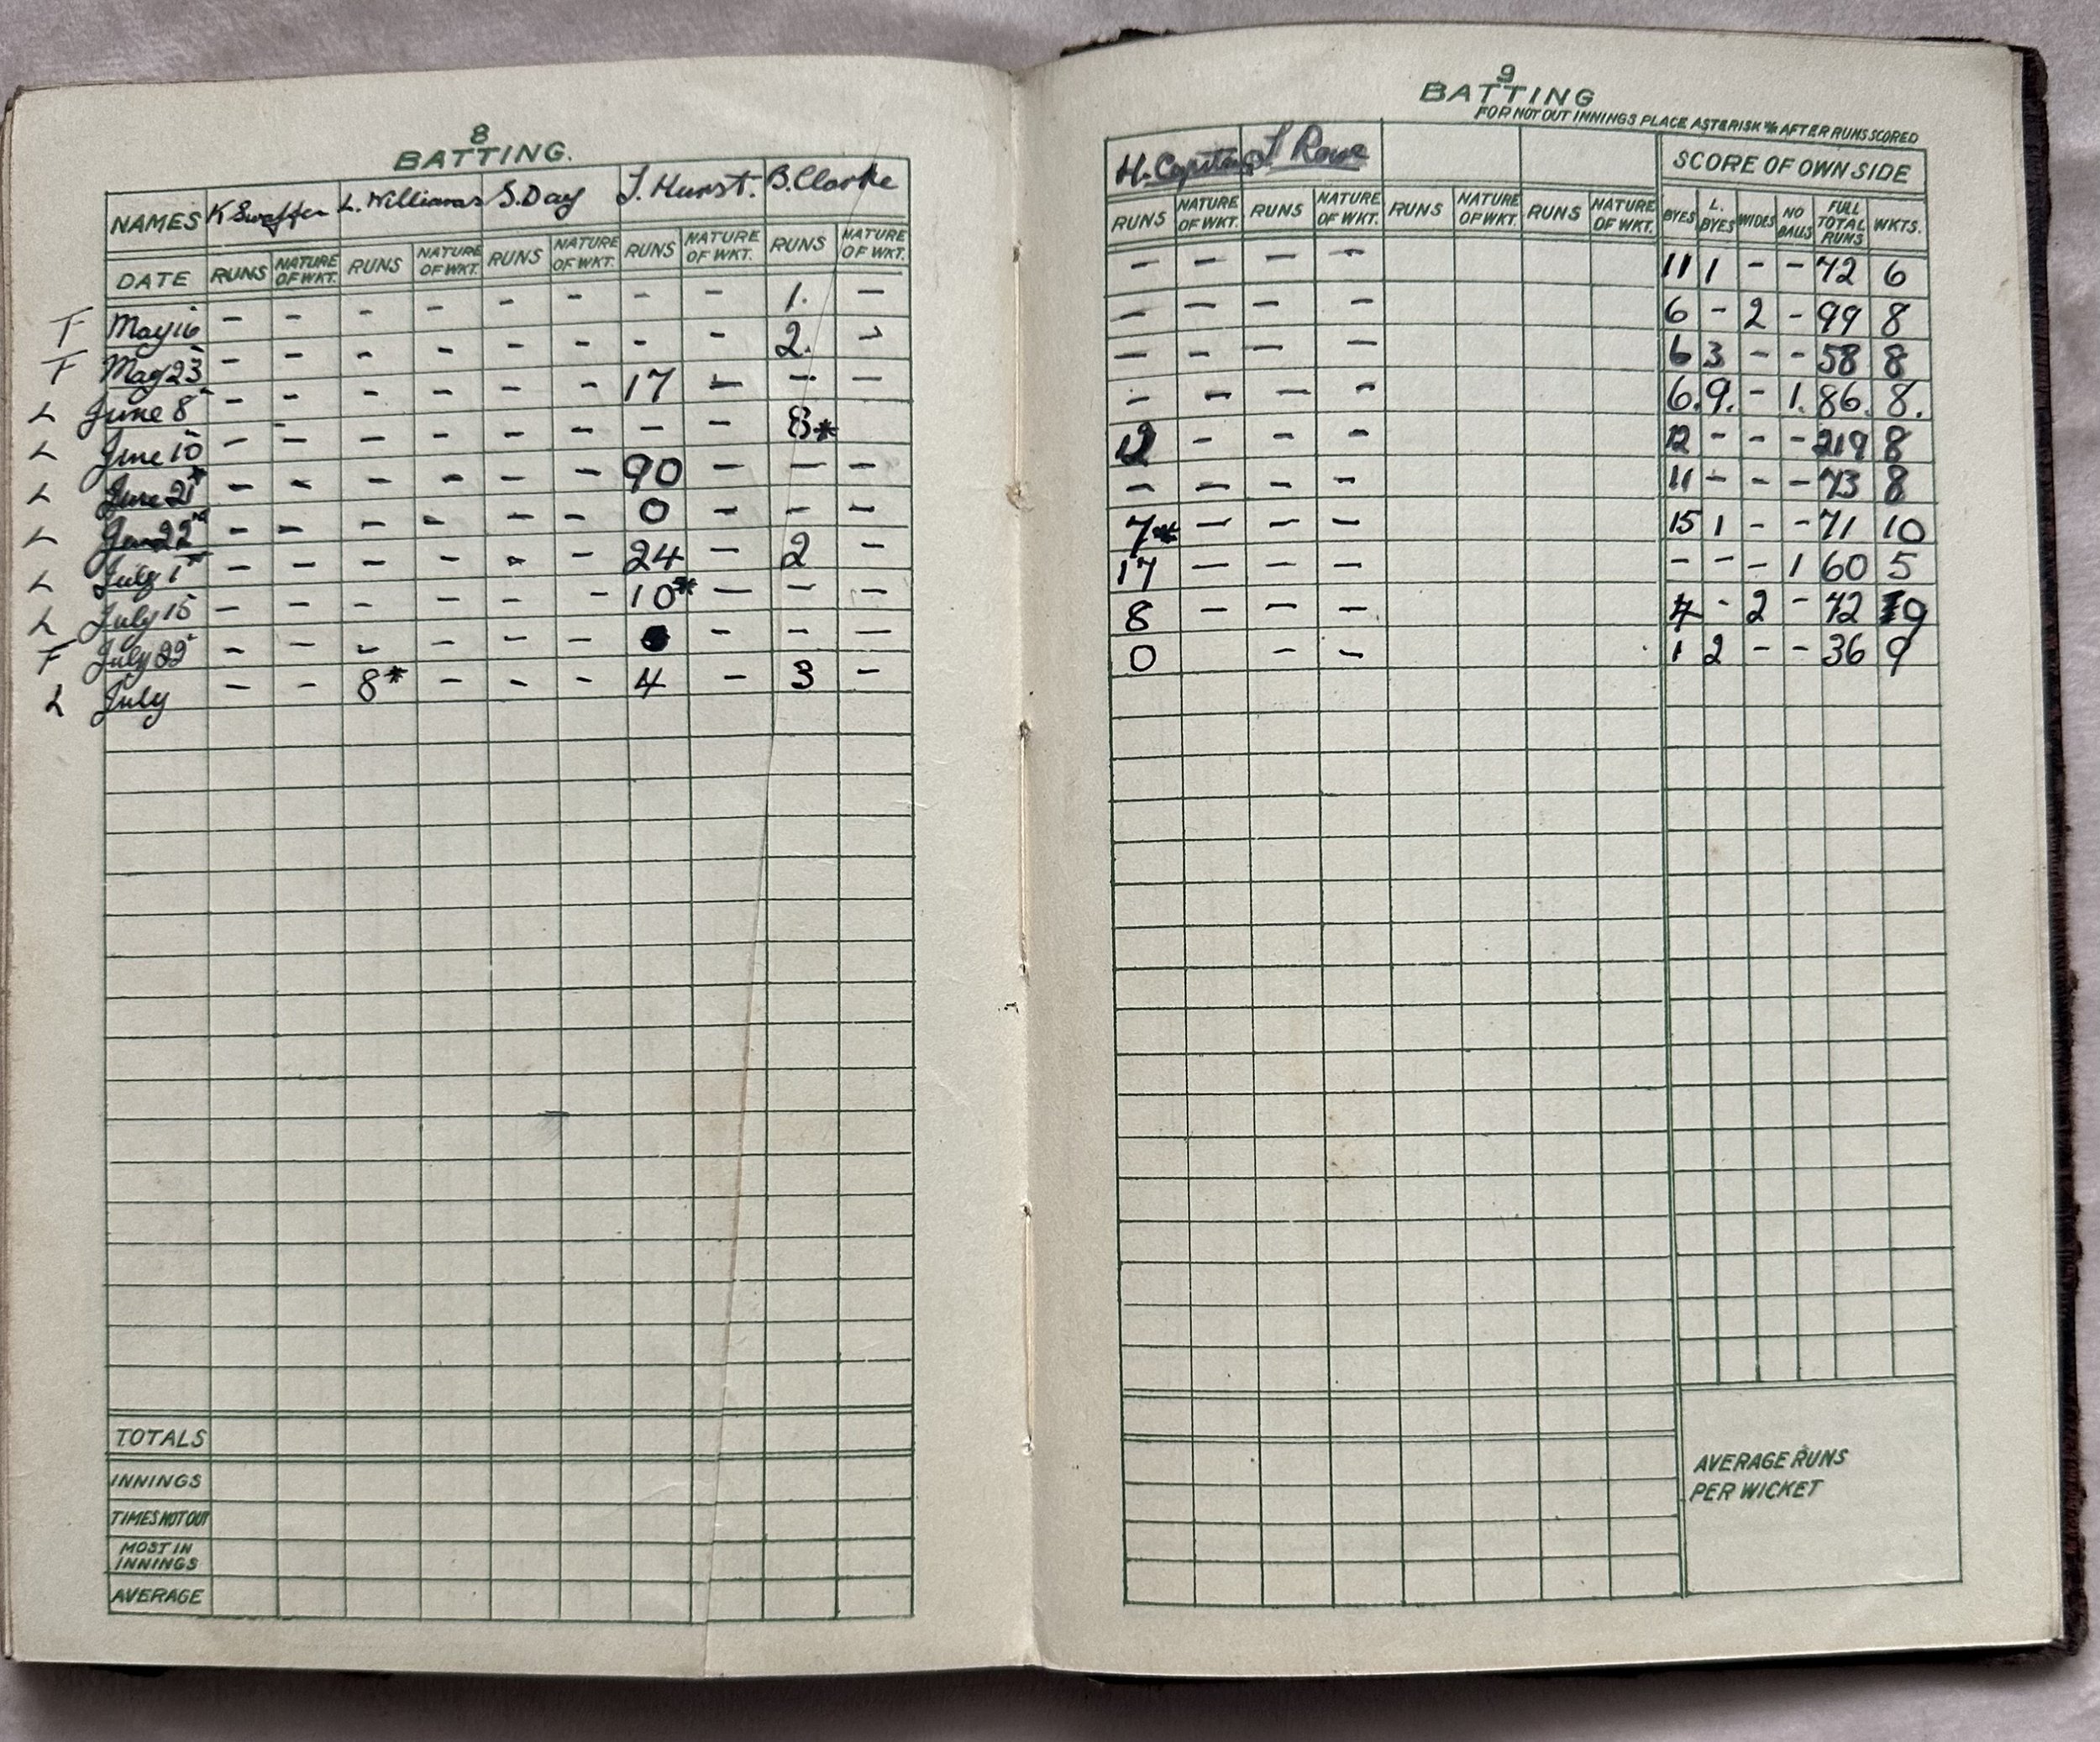 8
BATTING.
NAMES K Swaffer L. Williams S. Day J. Hurst. B. Clarke
DATE RUNS NATURE OF WKT. RUNS NATURE OF WKT. RUNS NATURE OF WKT. RUNS NATURE OF WKT. RUNS NATURE OF WKT.
F May 16 - - - - - - - - 1. -
F May 23 - - - - - - - - 2. -
L June 8 - - - - - - 17 - - -
L June 10 - - - - - - - - 8*
L June 21st - - - - - - 90 - - -
L 22nd - - - - - - 0 - - -
L July 1st - - - - - - 24 - 2 -
L July 15 - - - - - - 10* - - -
F July 22 - - - - - - - - -
L July - - 8* - - - 4 - 3 -
TOTALS
INNINGS
TIMES NOT OUT
MOST IN INNINGS
AVERAGE
9
BATTING
FOR NOT OUT INNINGS PLACE ASTERISK * AFTER RUNS SCORED
H. J Rowe SCORE OF OWN SIDE
RUNS NATURE OF WKT. RUNS NATURE OF WKT. RUNS NATURE OF WKT. RUNS NATURE OF WKT. BYES L. BYES WIDES NO BALLS FULL TOTAL RUNS WKTS.
- - - - 11 1 - - 72 6
- - - - 6 - 2 - 99 8
- - - - 6 3 - - 58 8
- - - - 6. 9. - 1. 86. 8.
12 - - - 12 - - - 219 8
- - - - 11 - - - 73 8
7* - - - 15 1 - - 71 10
17 - - - - - - 1 60 5
8 - - - 4 - 2 - 72 9
0 - - 1 2 - - 36 9
AVERAGE RUNS
PER WICKET